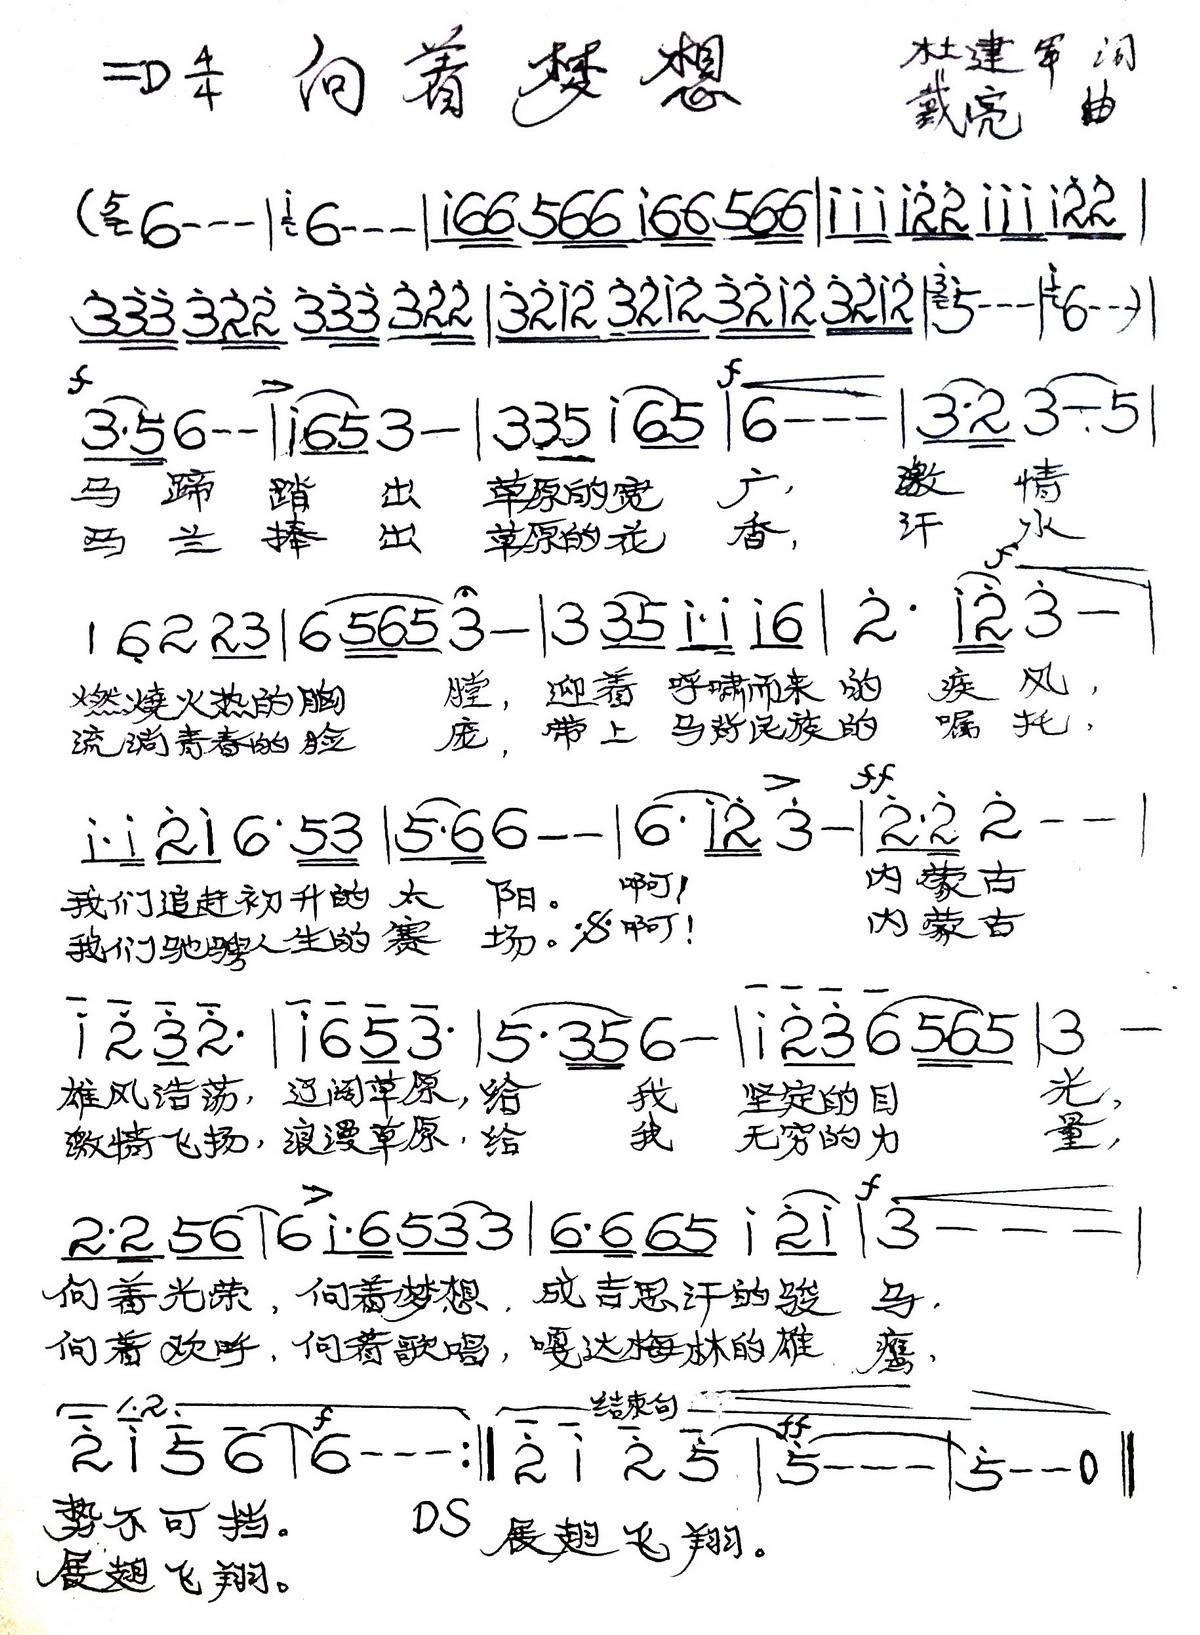 =D 4/4 向着梦想 杜建军 词
戴亮 曲
(6---|6---|i66 566 i66 566|iii i22 iii i22|
333 322 333 322|3212 3212 3212 3212|5---|6--)|
f > f
3·5 6--|i65 3-|335 i 65|6---|3·2 3-·5|
马蹄踏出草原的宽广，激情
马兰捧出草原的花香，汗水
f
1 6 2 23|6 565 3-|3 35 i·i i6|2· i2 3-|
燃烧火热的胸膛，迎着呼啸而来的疾风，
流淌青春的脸庞，带上马背民族的嘱托，
> ff
i·i 2i 6·53|5·6 6--|6·i2 3-|2·2 2--|
我们追赶初升的太阳。啊！内蒙古
我们驰骋人生的赛场。啊！内蒙古
i 2 3 2·|i 6 5 3·|5·35 6-|i 2 3 6 565|3-
雄风浩荡，辽阔草原，给我坚定的目光，
激情飞扬，浪漫草原，给我无穷的力量，
> f
2·2 56|6 i·6 53 3|6·6 65 i 2i|3---|
向着光荣，向着梦想，成吉思汗的骏马，
向着欢呼，向着歌唱，嘎达梅林的雄鹰，
1.2. 结束句
f ff
2 i 5 6|6---:||2 i 2 5|5---|5--0||
势不可挡。 DS 展翅飞翔。
展翅飞翔。